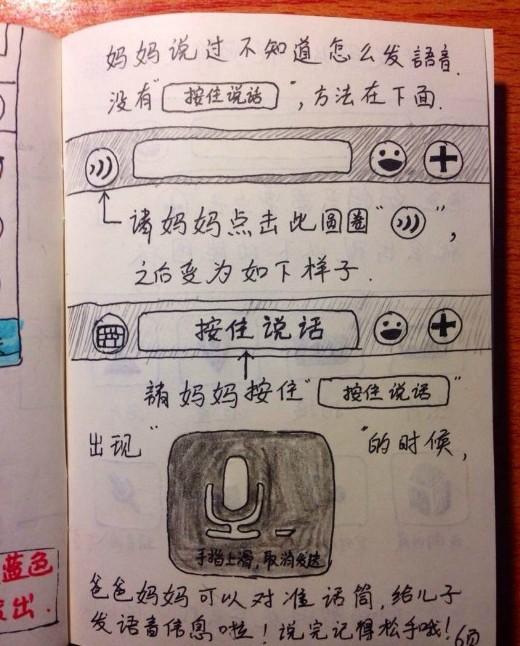 妈妈说过不知道怎么发語音.
没有“按住说话”,方法在下面.
请妈妈点击此圆圈“ ”,
之后变为如下样子.
按住说话
請妈妈按住“按住说话”
出现“ ”的时候,
手指上滑,取消发送
爸爸妈妈可以对准话筒,给儿子
发语音信息啦!说完记得松手哦!
6页
蓝色
出.